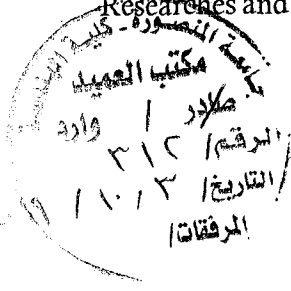 Researches and
جامعة المنصورة - كلية
مكتب العميد
صادر / وارد
الرقم / ٣١٢
التاريخ / ٣ / ١٠ /
المرفقات /